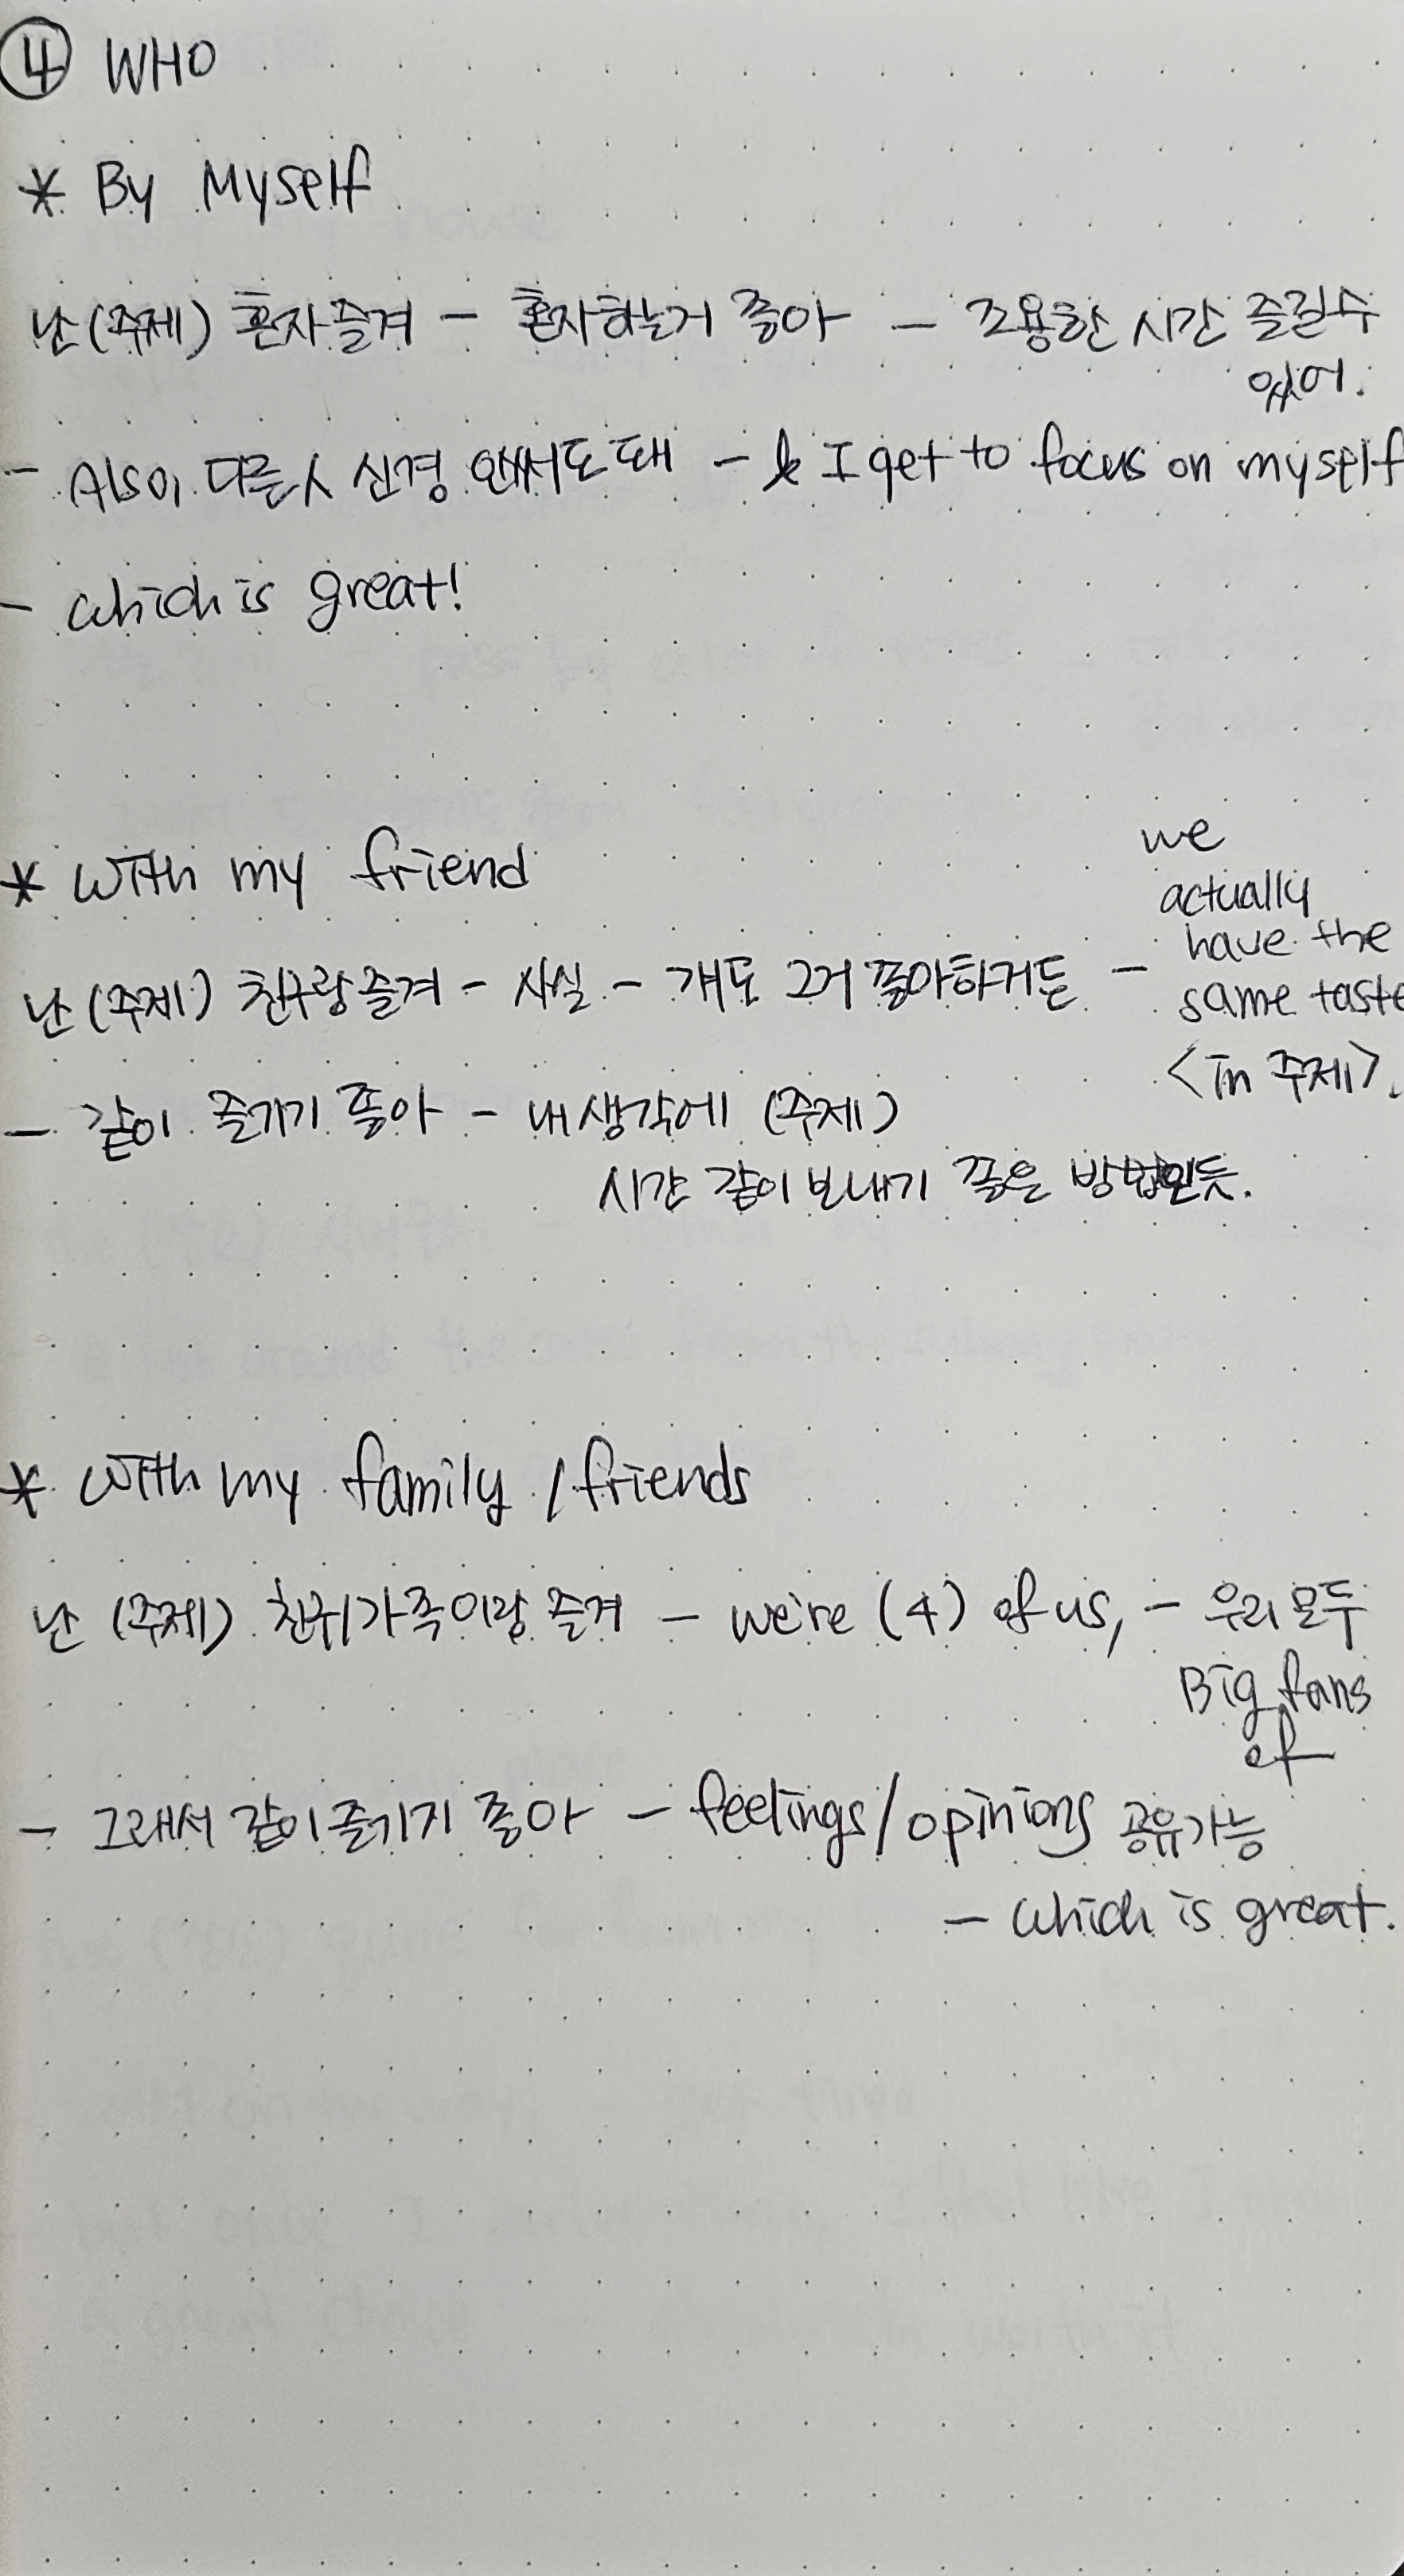 ④ WHO
* By Myself
난 (주제) 혼자 즐겨 - 혼자하는거 좋아 - 조용한 시간 즐길수
있어.
- Also, 다른人 신경 안써도 돼 - & I get to focus on myself
- which is great!
* with my friend
난 (주제) 친구랑 즐겨 - 사실 - 걔도 그거 좋아하거든 -
we
actually
have the
same taste
<in 주제>.
- 같이 즐기기 좋아 - 내생각에 (주제)
시간 같이 보내기 좋은 방법인듯.
* with my family / friends
난 (주제) 친구/가족이랑 즐겨 - we're (4) of us, - 우리 모두
Big fans
of
- 그래서 같이 즐기기 좋아 - feelings/opinions 공유가능
- which is great.